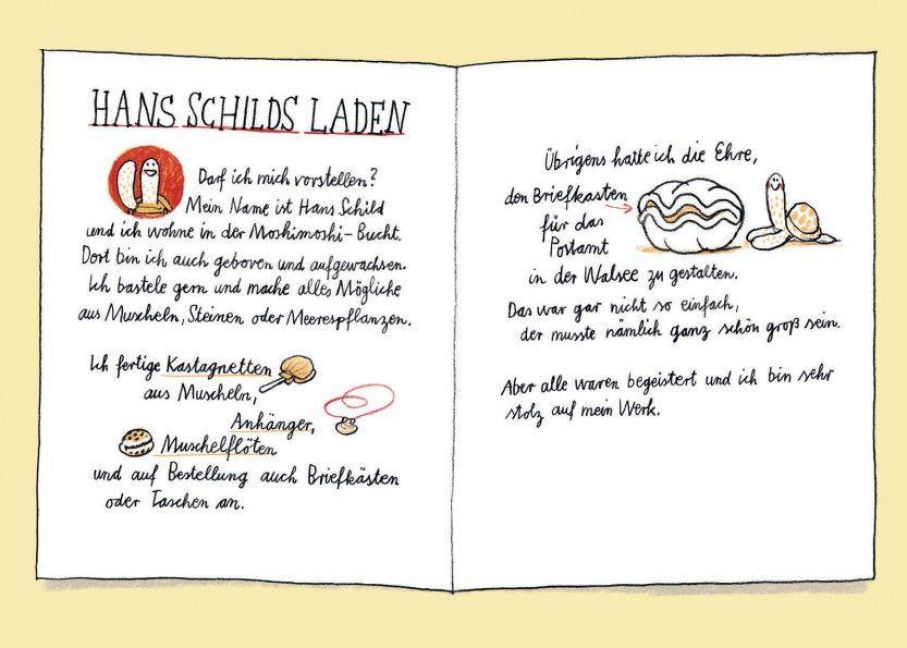 HANS SCHILDS LADEN
Darf ich mich vorstellen?
Mein Name ist Hans Schild
und ich wohne in der Moshimoshi-Bucht.
Dort bin ich auch geboren und aufgewachsen.
Ich bastele gern und mache alles Mögliche
aus Muscheln, Steinen oder Meerespflanzen.
Ich fertige Kastagnetten
aus Muscheln,
Anhänger,
Muschelflöten
und auf Bestellung auch Briefkästen
oder Taschen an.
Übrigens hatte ich die Ehre,
den Briefkasten
für das
Postamt
in der Walsee zu gestalten.
Das war gar nicht so einfach,
der musste nämlich ganz schön groß sein.
Aber alle waren begeistert und ich bin sehr
stolz auf mein Werk.